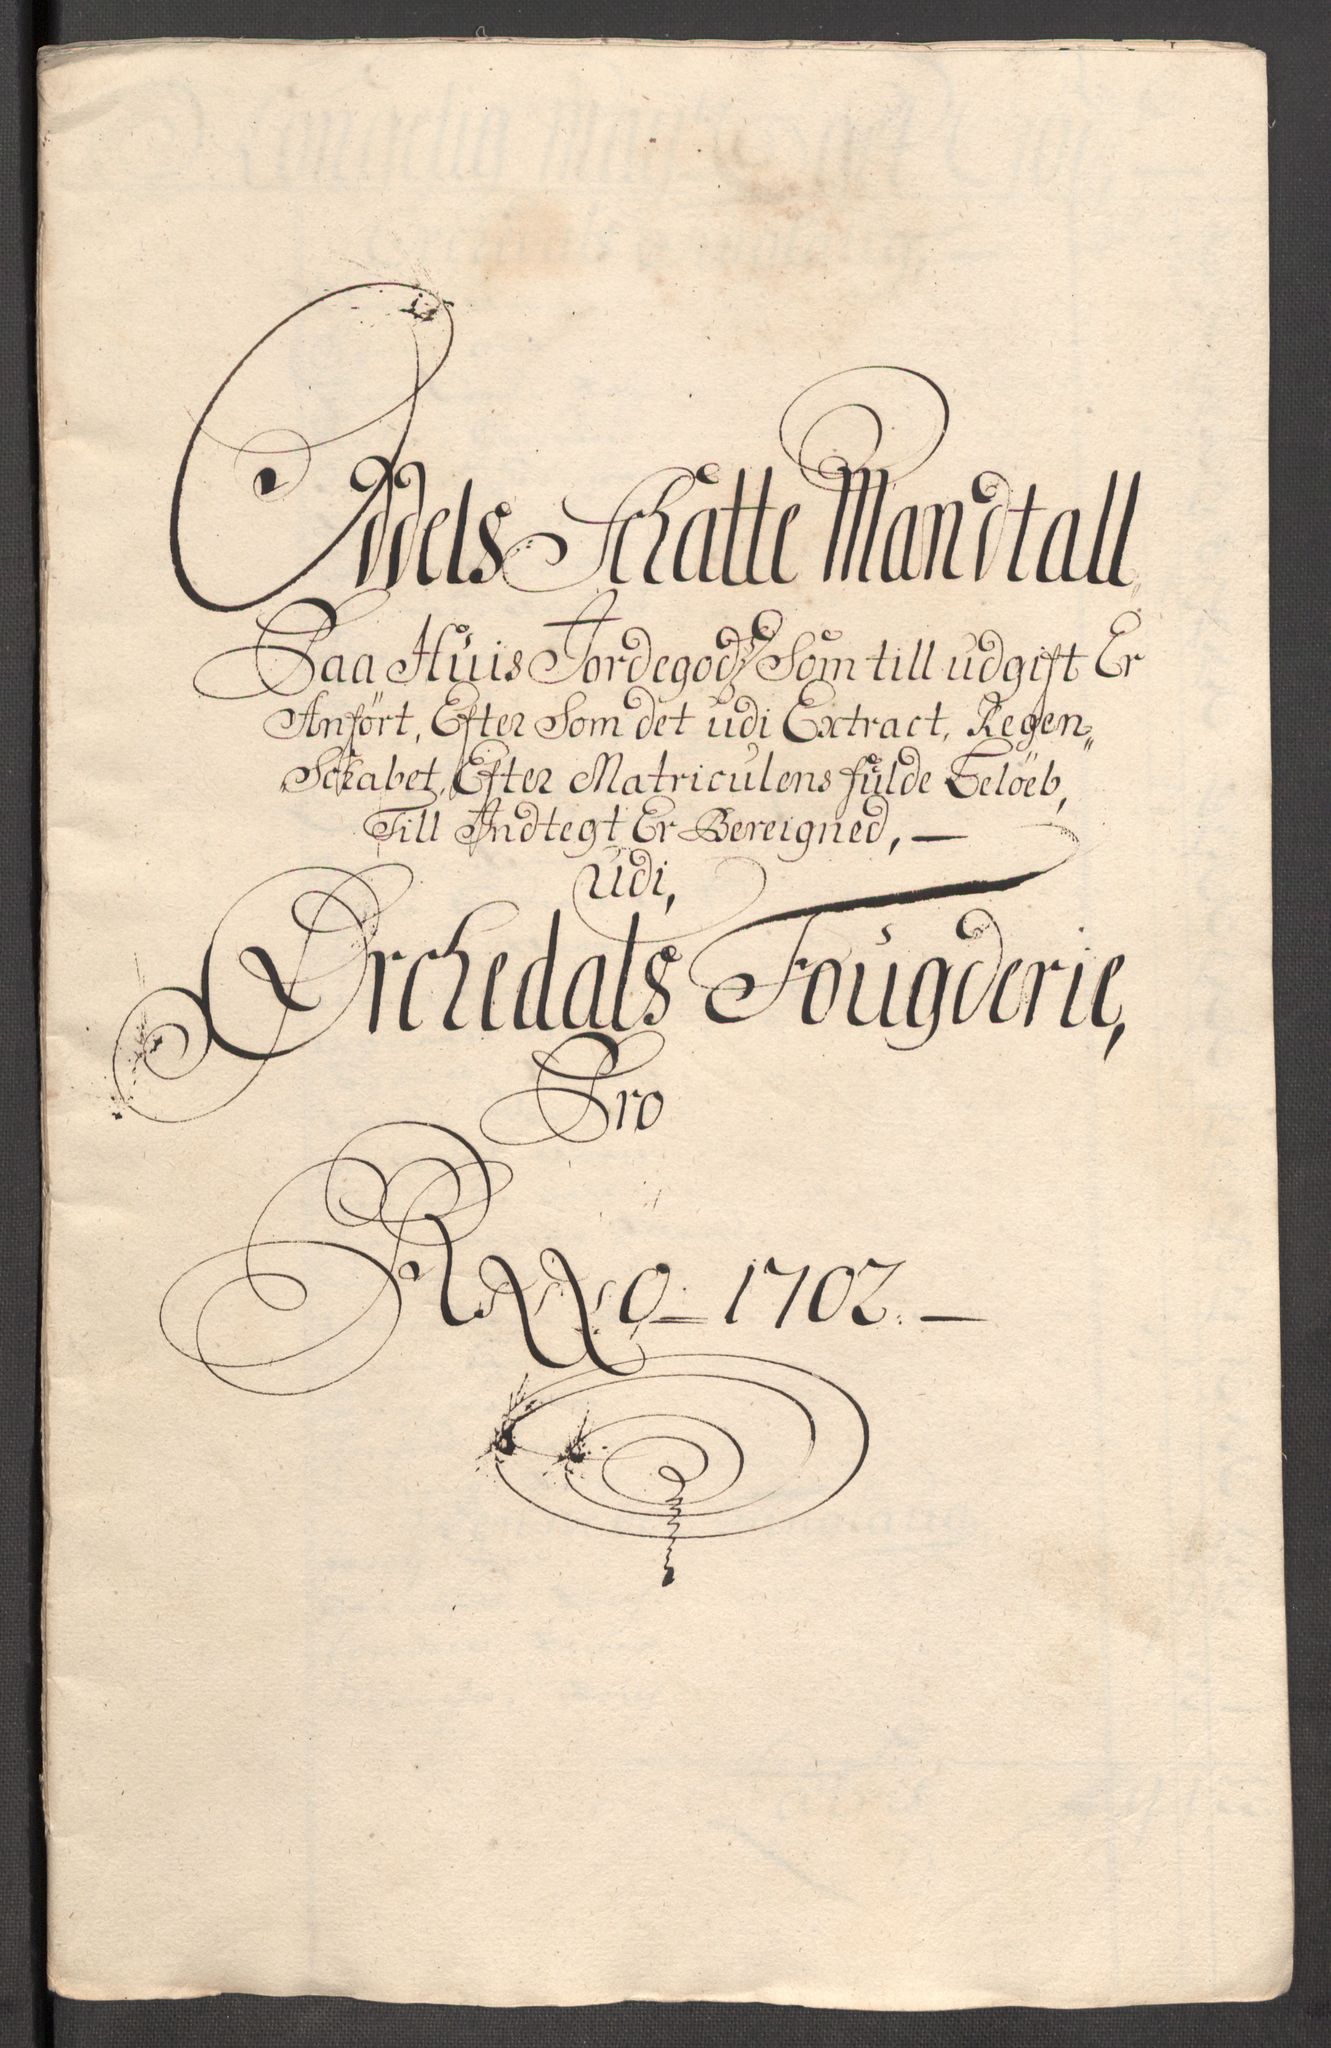 Oddels Schatte Mandtall,
Paa Huis Jordegodz Som till udgift Er
Anført, Efter Som det udi Extract, Regen„
Schabet, Efter Matriculens fulde Beløeb,
Till Indtegt Er Bereigned, —
Udi,
Orchedals Fougderie,
Pro
ANNO — 1702. —